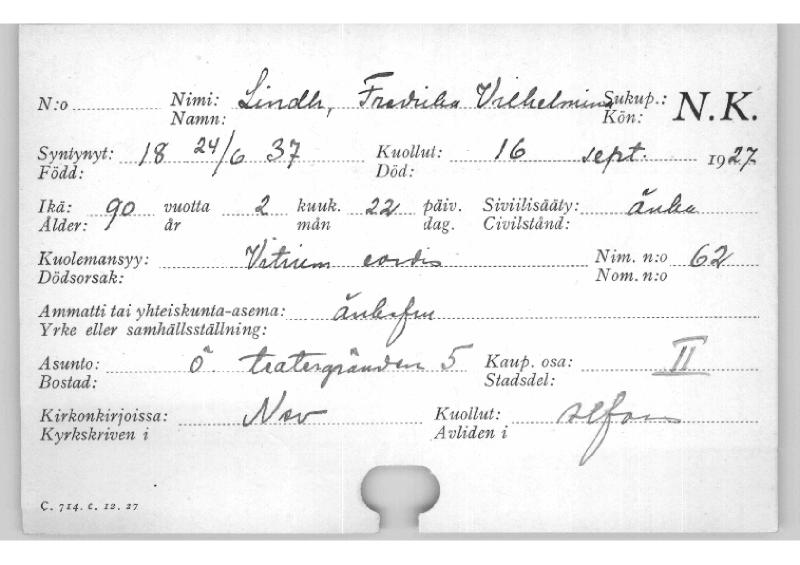 N:o Nimi: Lindh, Fredrika Vilhelmina Sukup.: N.K.
Namn: Kön:
Syntynyt: 18 24/6 37 Kuollut: 16 sept. 1927
Född: Död:
Ikä: 90 vuotta 2 kuuk. 22 päiv. Siviilisääty: änka
Ålder: år mån dag. Civilstånd:
Kuolemansyy: Vitium cordis Nim. n:o 62
Dödsorsak: Nom. n:o
Ammatti tai yhteiskunta-asema: änkefru
Yrke eller samhällsställning:
Asunto: Ö. teatergränden 5 Kaup. osa: II
Bostad: Stadsdel:
Kirkonkirjoissa: Nsv Kuollut:
Kyrkskriven i Avliden i
C. 714. c. 12. 27